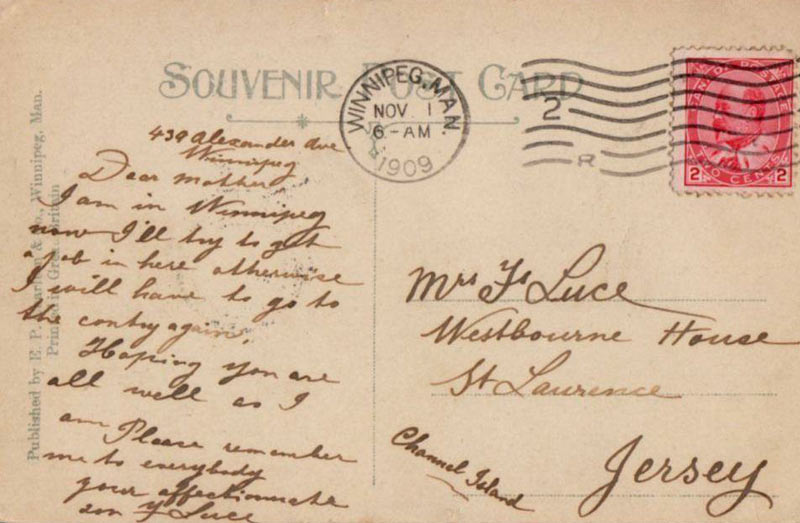 SOUVENIR POST CARD
WINNIPEG, MAN.
NOV 1
6-AM
1909
2
R
CANADA POSTAGE
2 TWO CENTS 2
Published by E. P. & Co., Winnipeg, Man.
Printed in Great Britain
439 Alexander Ave
Winnipeg
Dear mother
I am in Winnipeg
now I'll try to get
a job in here otherwise
I will have to go to
the contry again.
Hoping you are
all well as I
am Please remember
me to everybody
your affectionate
son Luce
Mrs Fs Luce
Westbourne House
St Laurence
Jersey
Channel Island